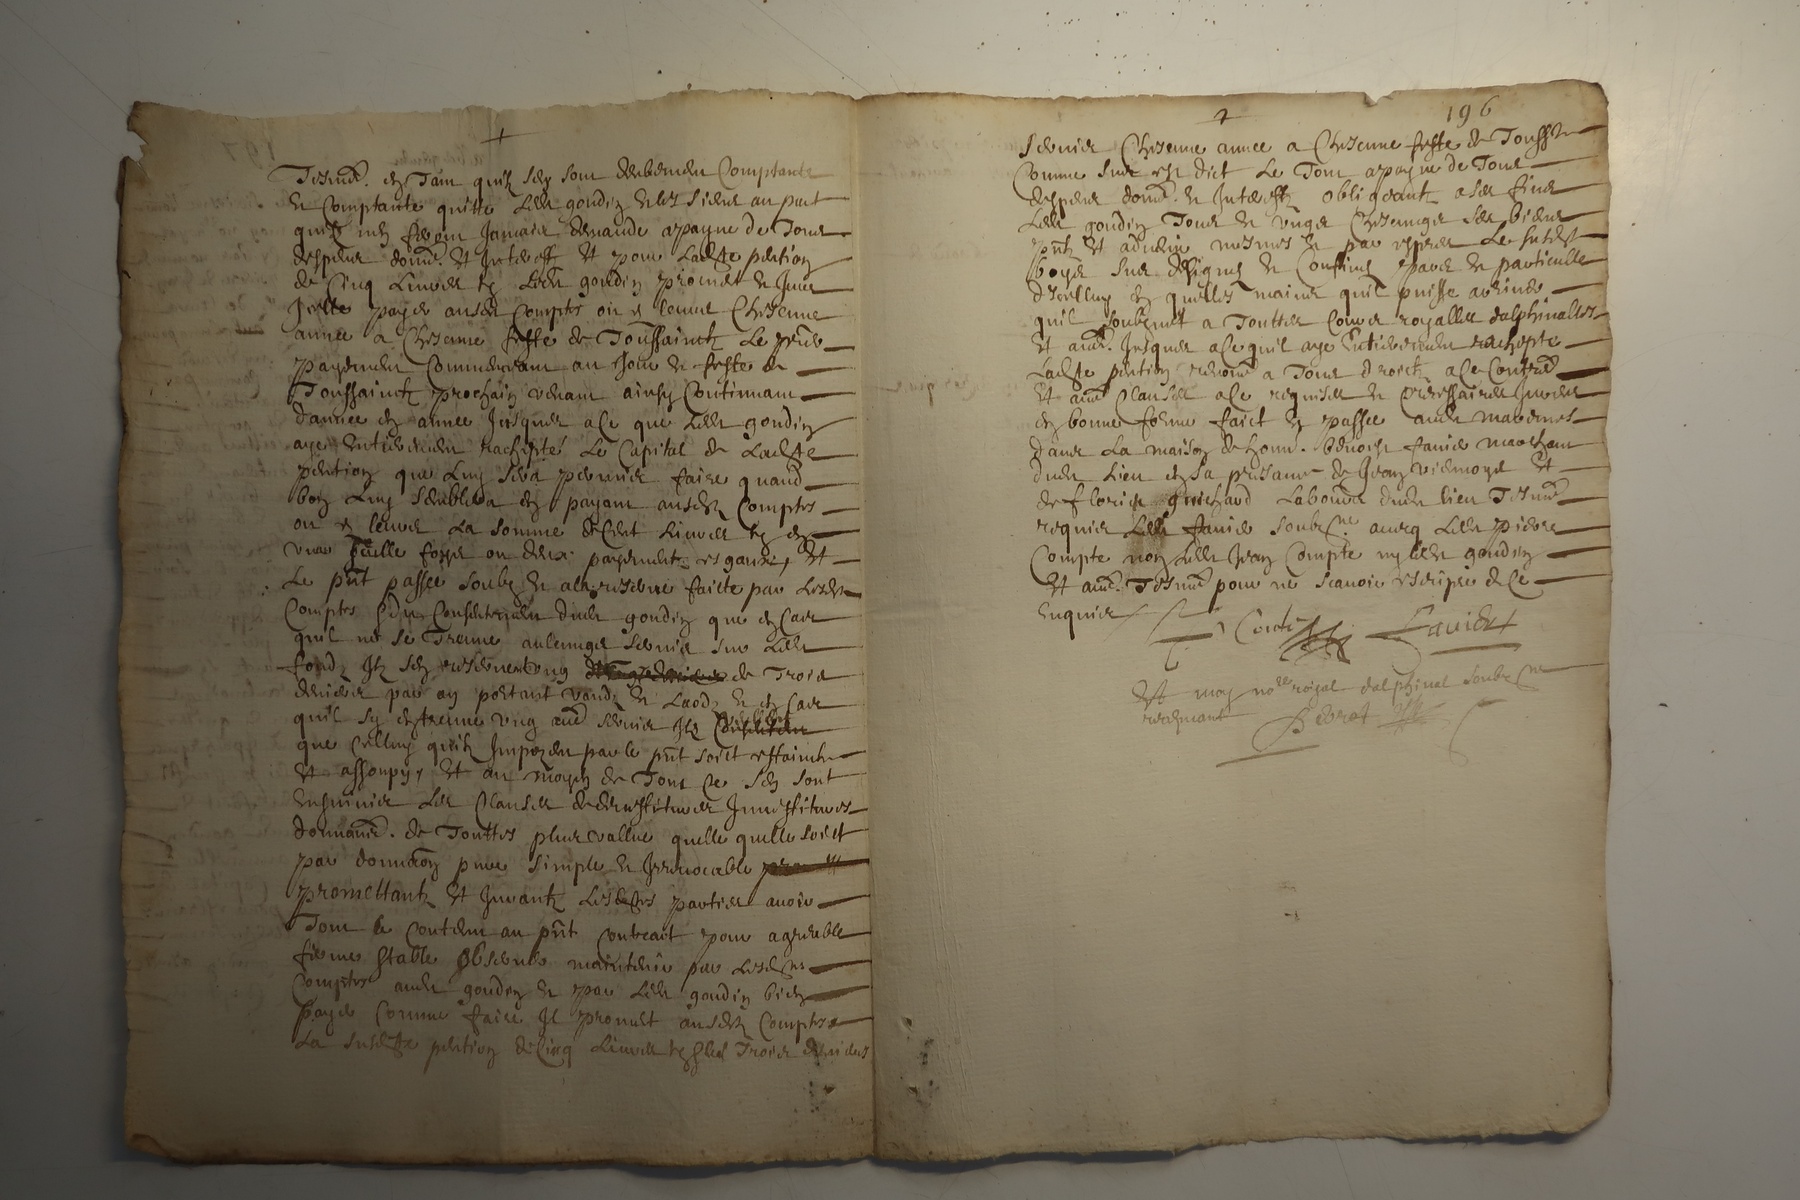 +
Tesmoings. en Tant quilz sen sont deuement Comptante
et Comptante quitte ledt goudin et les siens au part
quilz ne feront Jamais demande a payne de Tous
despens domes et Interestz et pour ladte pention
de Cinq Liures tz ledt goudin promet et Jure
Jcelle payer ausdz Comptes ou es leurs Chescune
annee a Chescune feste de Toussainctz Le pmier
payement Commencant au Jour et feste de
Toussainctz prochain venant ainsy Continuant
dannee en annee Jusques a ce que ledt goudin
aye entierement rachepté Le Capital de Ladte
pention que Luy sera permis faire quand
bon Luy semblera en payant ausdz Comptes
ou es leurs La somme de Cent Liures tz en
vne seulle foys ou deux payements esgaux, et
Le pnt passé soubz et a la reserue faicte par lesdz
Comptes du Consentement dudt goudin que en Cas
quil ne se Treuue aulcungs seruis sur ledt
fondz Ilz sen reseruent ung de Trois
deniers par an portant vendz et Laodz et en Cas
quil sy en treuue ung aue seruis Ilz
que Celluy quilz Imposent par le pnt soict estainctz
et assoupy, et au moyen de Tout Ce sen sont
ensuiuies Les Clauses de desvestitures Inuestitures
donnaons. de Touttes plus vallue quelle quelle soict
par donnaon pure simple et Irreuocable
promettantz et Jurantz Lesdtes parties auoir
Tout le Contenu au pnt Contract pour agreable
ferme stable obserué maintenir par lesdtz
Comptes audt goudin et par ledt goudin bien
payer Comme faire Il promet ausdz Comptes
La susdte pention de Cinq Liures tz et les Trois deniers
+ 196
seruis Chescune annee a Chescune feste de Toussts
Comme sus est dict Le Tout a payne de Tous
despens domes et Interestz obligeant a ses fins
ledt goudin Tous et ungs Chescungs ses biens
pntz et aduenir mesmes et par expres Le susdt
boys sus designé et Confiné pareé et particulle
dicelluy en quelles mains quil puisse aduenir
quil soubzmet a Touttes Cours royalles dalphinalles
et aues. Jusques a ce quil aye entierement rachepte
Ladte pention renonce a Tous droictz a Ce Contres
et aues Clauses a Ce requises et necessaires Jurées
en bonne forme faict et passé audt
dans La maison de hones. benoist fauier marchant
dudt lieu en la presance de Jean et
de floris guichard Laboureur dudt lieu Tesmes
requis ledt fauier soubzne auecq ledt pierre
Compte non ledt Jean Compte ny ledt goudin
et aues Tesmes pour ne scauoir escripre de Ce
enquis
Conte Fauier
Et moy nore royal dalphinal soubzne
recepuant